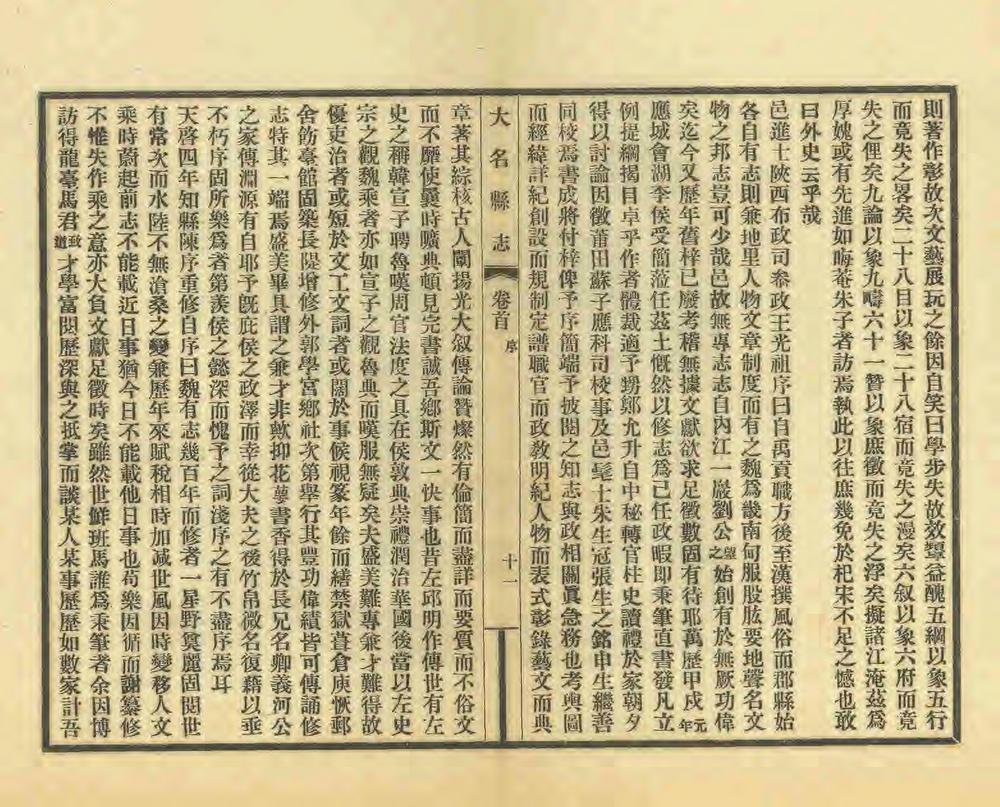 則著作彰故次文藝展玩之餘因自笑曰學步失故效顰益醜五綱以象五行
而竟失之畧矣二十八目以象二十八宿而竟失之漫矣六叙以象六府而竟
失之俚矣九論以象九疇六十一贊以象庶徵而竟失之浮矣擬諸江淹茲爲
厚媿或有先進如晦菴朱子者訪焉執此以往庶幾免於杞宋不足之憾也敢
曰外史云乎哉
邑進士陝西布政司參政王光祖序曰自禹貢職方後至漢撰風俗而郡縣始
各自有志則兼地里人物文章制度而有之魏爲畿南甸服股肱要地聲名文
物之邦志豈可少哉邑故無專志志自內江一巖劉公之望始創有於無厥功偉
矣迄今又歷年舊梓已廢考稽無據文獻欲求足徵數固有待耶萬歷甲戍元年
應城會湖李侯受簡蒞任茲土慨然以修志爲已任政暇即秉筆直書發凡立
例提綱揭目卓乎作者體裁適予甥鄭允升自中秘轉官柱史讀禮於家朝夕
得以討論因徵莆田蘇子應科司校事及邑髦士朱生冠張生之銘申生繼善
同校焉書成將付梓俾予序簡端予披閱之知志與政相關眞急務也考輿圖
而經緯詳紀創設而規制定譜職官而政敎明紀人物而表式彰錄藝文而典
大名縣志 卷首 序 十一
章著其綜核古人闡揚光大叙傳論贊燦然有倫簡而盡詳而要質而不俗文
而不靡使曩時曠典頓見完書誠吾鄉斯文一快事也昔左邱明作傳世有左
史之稱韓宣子聘魯嘆周官法度之具在侯敦典崇禮潤治華國後當以左史
宗之觀魏乘者亦如宣子之觀魯典而嘆服無疑矣夫盛美難專兼才難得故
優吏治者或短於文工文詞者或闊於事侯視篆年餘而繕禁獄葺倉庾恢郵
舍飭臺館固築長隄增修外郭學宮鄉社次第舉行其豐功偉績皆可傳誦修
志特其一端焉盛美畢具謂之兼才非歟抑花萼書香得於長兄名卿義河公
之家傳淵源有自耶予旣庇侯之政澤而幸從大夫之後竹帛微名復藉以垂
不朽序固所樂爲者第羨侯之懿深而愧予之詞淺序之有不盡序焉耳
天啓四年知縣陳序重修自序曰魏有志幾百年而修者一星野奠麗固閱世
有常次而水陸不無滄桑之變兼歷年來賦稅相時加减世風因時變移人文
乘時蔚起前志不能載近日事猶今日不能載他日事也苟樂因循而謝纂修
不惟失作乘之意亦大負文獻足徵時矣雖然世鮮班馬誰爲秉筆者余因博
訪得龍臺馬君政遒才學富閱歷深與之抵掌而談某人某事歷歷如數家計吾